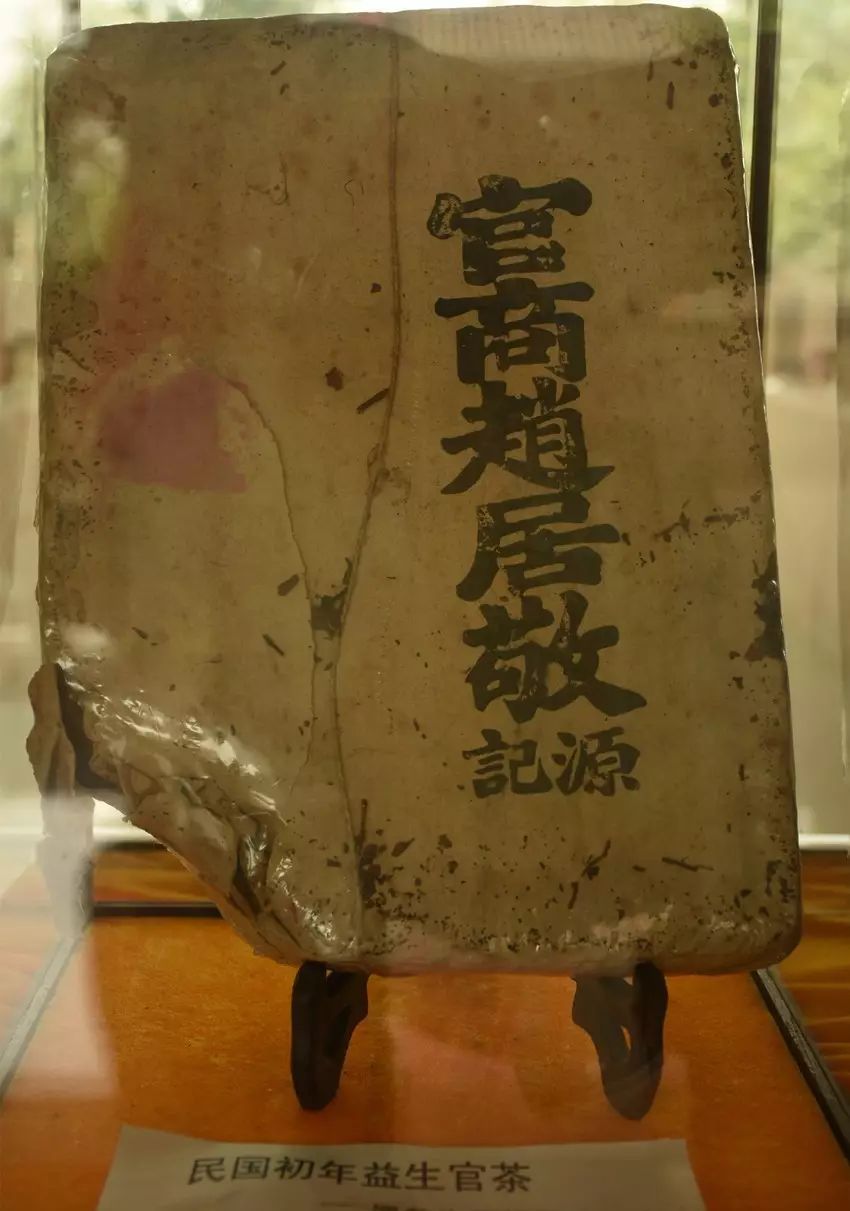 官商趙居敬
源記
民国初年益生官茶